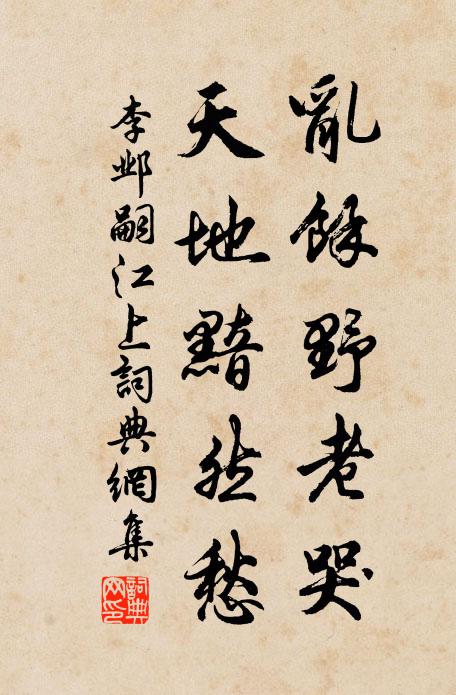 亂餘野老哭
天地黯然愁
李邺嗣江上詞典網集
詞典